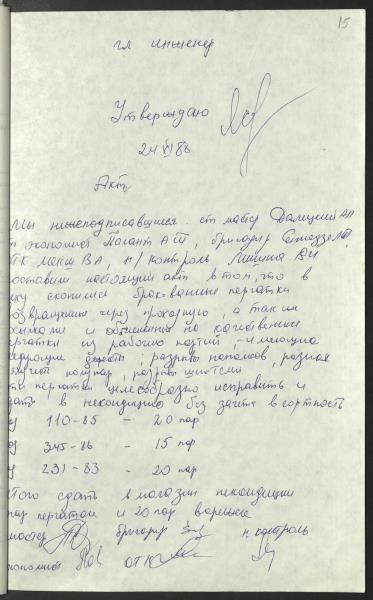 15
гл инженер
Утверждаю
24 VI 86
Акт
Мы нижеподписавшиеся ст мастер Далецкий АП
экономист Палант А Т, бригадир
ВА, н/контроль Ли
составили настоящий акт в том, что в
цеху скопились бракованные перчатки
возвращённые через а так же
и на качественные
перчатки из рабочих партий, имеющие
следующие дефекты, разрывы напалков, разная
пар, разрывы
перчатки целесообразно исправить и
сдать в некондицию без зачёта в сортность
110-85 - 20 пар
345-86 - 15 пар
231-83 - 20 пар
Итого сдать в магазин некондиции
пар перчаток и 20 пар варежек
мастер бригадир н. контроль
экономист ОТК